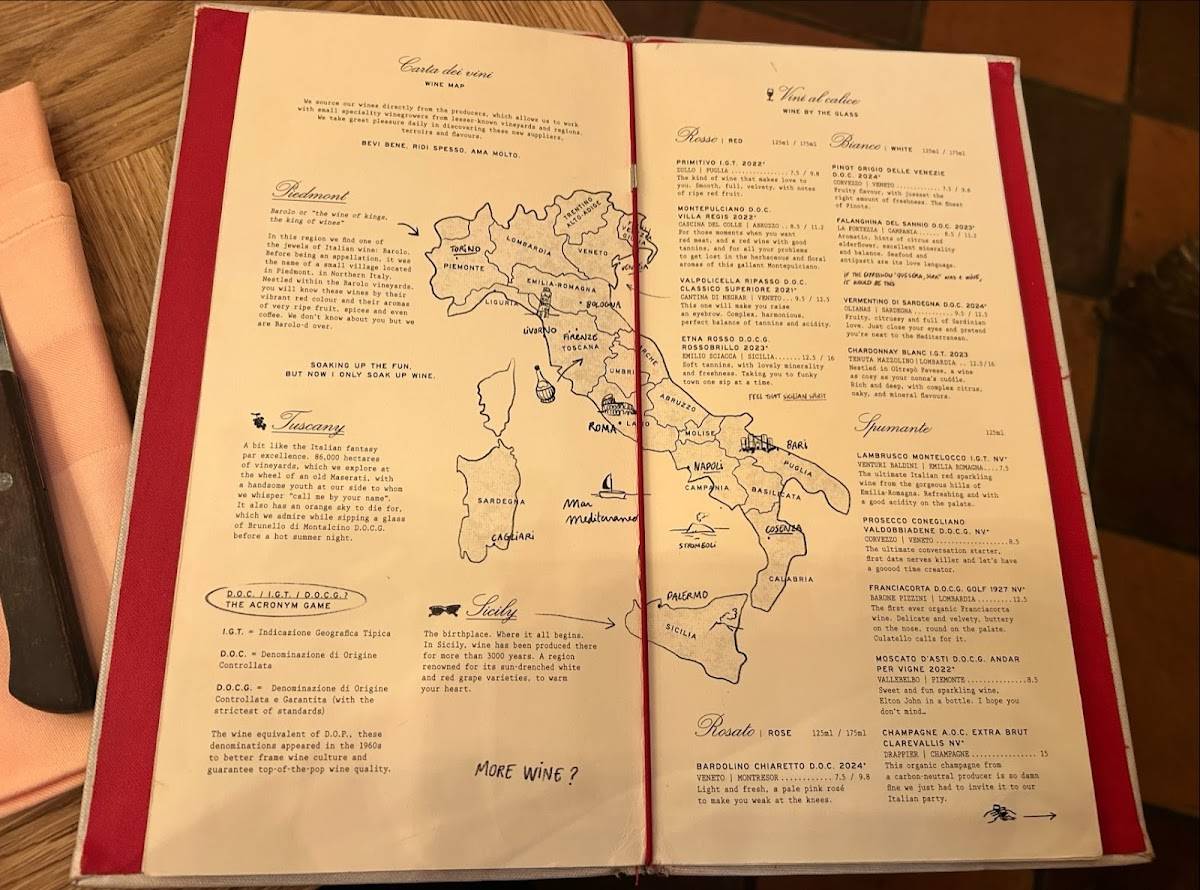 Carta dei vini
WINE MAP
We source our wines directly from the producers, which allows us to work
with small speciality winegrowers from lesser-known vineyards and regions.
We take great pleasure daily in discovering these new suppliers,
terroirs and flavours.
BEVI BENE, RIDI SPESSO, AMA MOLTO.
Piedmont
Barolo or "the wine of kings,
the king of wines"
In this region we find one of
the jewels of Italian wine: Barolo.
Before being an appellation, it was
the name of a small village located
in Piedmont, in Northern Italy.
Nestled within the Barolo vineyards,
you will know these wines by their
vibrant red colour and their aromas
of very ripe fruit, spices and even
coffee. We don't know about you but we
are Barolo-d over.
SOAKING UP THE FUN,
BUT NOW I ONLY SOAK UP WINE.
Tuscany
A bit like the Italian fantasy
par excellence. 86,000 hectares
of vineyards, which we explore at
the wheel of an old Maserati, with
a handsome youth at our side to whom
we whisper "call me by your name".
It also has an orange sky to die for,
which we admire while sipping a glass
of Brunello di Montalcino D.O.C.G.
before a hot summer night.
D.O.C. / I.G.T. / D.O.C.G.?
THE ACRONYM GAME
I.G.T. = Indicazione Geografica Tipica
D.O.C. = Denominazione di Origine
Controllata
D.O.C.G. = Denominazione di Origine
Controllata e Garantita (with the
strictest of standards)
The wine equivalent of D.O.P., these
denominations appeared in the 1960s
to better frame wine culture and
guarantee top-of-the-pop wine quality.
Sicily
The birthplace. Where it all begins.
In Sicily, wine has been produced there
for more than 3000 years. A region
renowned for its sun-drenched white
and red grape varieties, to warm
your heart.
MORE WINE?
TRENTINO
ALTO-ADIGE
TORINO
LOMBARDIA
VENETO
PIEMONTE
EMILIA-ROMAGNA
LIGURIA
BOLOGNA
LIVORNO
FIRENZE
TOSCANA
ABRUZZO
ROMA
MOLISE
BARI
NAPOLI
PUGLIA
CAMPANIA
BASILICATA
SARDEGNA
Mar
Mediteraneo
COSENZA
CAGLIARI
STROMBOLI
CALABRIA
PALERMO
SICILIA
Vini al calice
WINE BY THE GLASS
Rosso | RED 125ml / 175ml
PRIMITIVO I.G.T. 2022*
ZULLO | PUGLIA .............. 7.5 / 9.8
The kind of wine that makes love to
you. Smooth, full, velvety, with notes
of ripe red fruit.
MONTEPULCIANO D.O.C.
VILLA REGIS 2022*
CASCINA DEL COLLE | ABRUZZO .. 8.5 / 11.2
For those moments when you want
red meat, and a red wine with good
tannins, and for all your problems
to get lost in the herbaceous and floral
aromas of this gallant Montepulciano.
VALPOLICELLA RIPASSO D.O.C.
CLASSICO SUPERIORE 2021*
CANTINA DI NEGRAR | VENETO... 9.5 / 12.5
This one will make you raise
an eyebrow. Complex, harmonious,
perfect balance of tannins and acidity.
ETNA ROSSO D.O.C.G.
ROSSOBRILLO 2023*
EMILIO SCIACCA | SICILIA.......12.5 / 16
Soft tannins, with lovely minerality
and freshness. Taking you to funky
town one sip at a time.
FEEL THAT SICILIAN SPIRIT
Rosato | ROSE 125ml / 175ml
BARDOLINO CHIARETTO D.O.C. 2024*
VENETO | MONTRESOR ............ 7.5 / 9.8
Light and fresh, a pale pink rosé
to make you weak at the knees.
Bianco | WHITE 125ml / 175ml
PINOT GRIGIO DELLE VENEZIE
D.O.C. 2024*
CORVEZZO | VENETO ............ 7.5 / 9.8
Fruity flavour, with jusssst the
right amount of freshness. The finest
of Pinots.
FALANGHINA DEL SANNIO D.O.C. 2023*
LA FORTEZZA | CAMPANIA...... 8.5 / 11.2
Aromatic, hints of citrus and
elderflower, excellent minerality
and balance. Seafood and
antipasti are its love language.
IT WOULD BE THIS
VERMENTINO DI SARDEGNA D.O.C. 2024*
OLIANAS | SARDEGNA ............ 9.5 / 12.5
Fruity, citrussy and full of Sardinian
love. Just close your eyes and pretend
you're next to the Mediterranean.
CHARDONNAY BLANC I.G.T. 2023
TENUTA MAZZOLINO | LOMBARDIA .. 12.5/16
Nestled in Oltrepò Pavese, a wine
as cosy as your nonna's cuddle.
Rich and deep, with complex citrus,
oaky, and mineral flavours.
Spumante 125ml
LAMBRUSCO MONTELOCCO I.G.T. NV*
VENTURI BALDINI | EMILIA ROMAGNA....7.5
The ultimate Italian red sparkling
wine from the gorgeous hills of
Emilia-Romagna. Refreshing and with
a good acidity on the palate.
PROSECCO CONEGLIANO
VALDOBBIADENE D.O.C.G. NV*
CORVEZZO | VENETO ..................8.5
The ultimate conversation starter,
first date nerves killer and let's have
a gooood time creator.
FRANCIACORTA D.O.C.G. GOLF 1927 NV*
BARONE PIZZINI | LOMBARDIA .........12.5
The first ever organic Franciacorta
wine. Delicate and velvety, buttery
on the nose, round on the palate.
Culatello calls for it.
MOSCATO D'ASTI D.O.C.G. ANDAR
PER VIGNE 2022*
VALLEBELBO | PIEMONTE ..............8.5
Sweet and fun sparkling wine.
Elton John in a bottle. I hope you
don't mind…
CHAMPAGNE A.O.C. EXTRA BRUT
CLAREVALLIS NV*
DRAPPIER | CHAMPAGNE ............... 15
This organic champagne from
a carbon-neutral producer is so damn
fine we just had to invite it to our
Italian party.